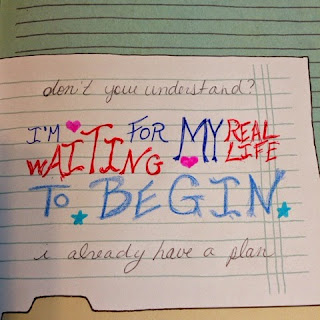 don't you understand?
I'M WAITING FOR MY REAL LIFE
TO BEGIN.
i already have a plan